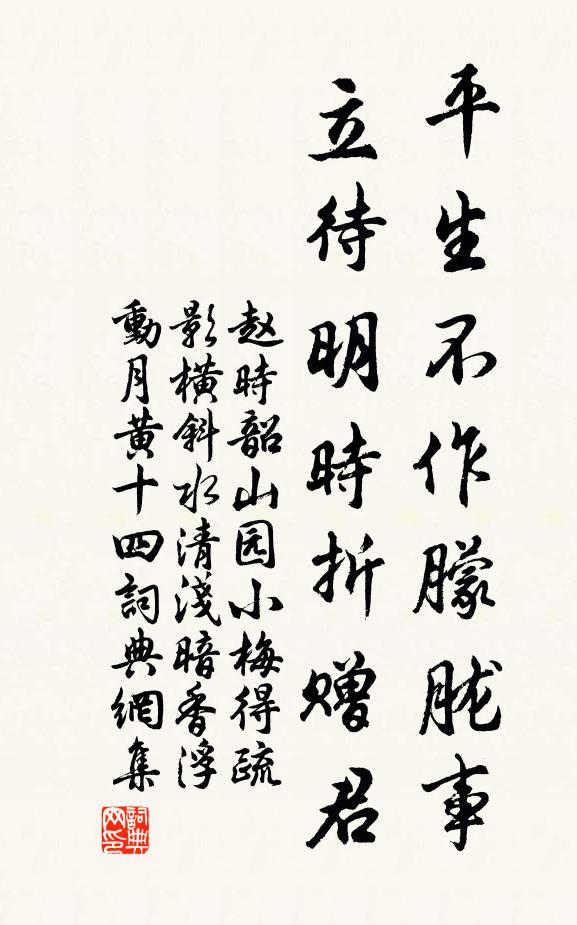 平生不作朦胧事
立待明時折赠君
赵時韶山园小梅得疏
影橫斜水清淺暗香浮
動月黃十四詞典網集
詞典
网印